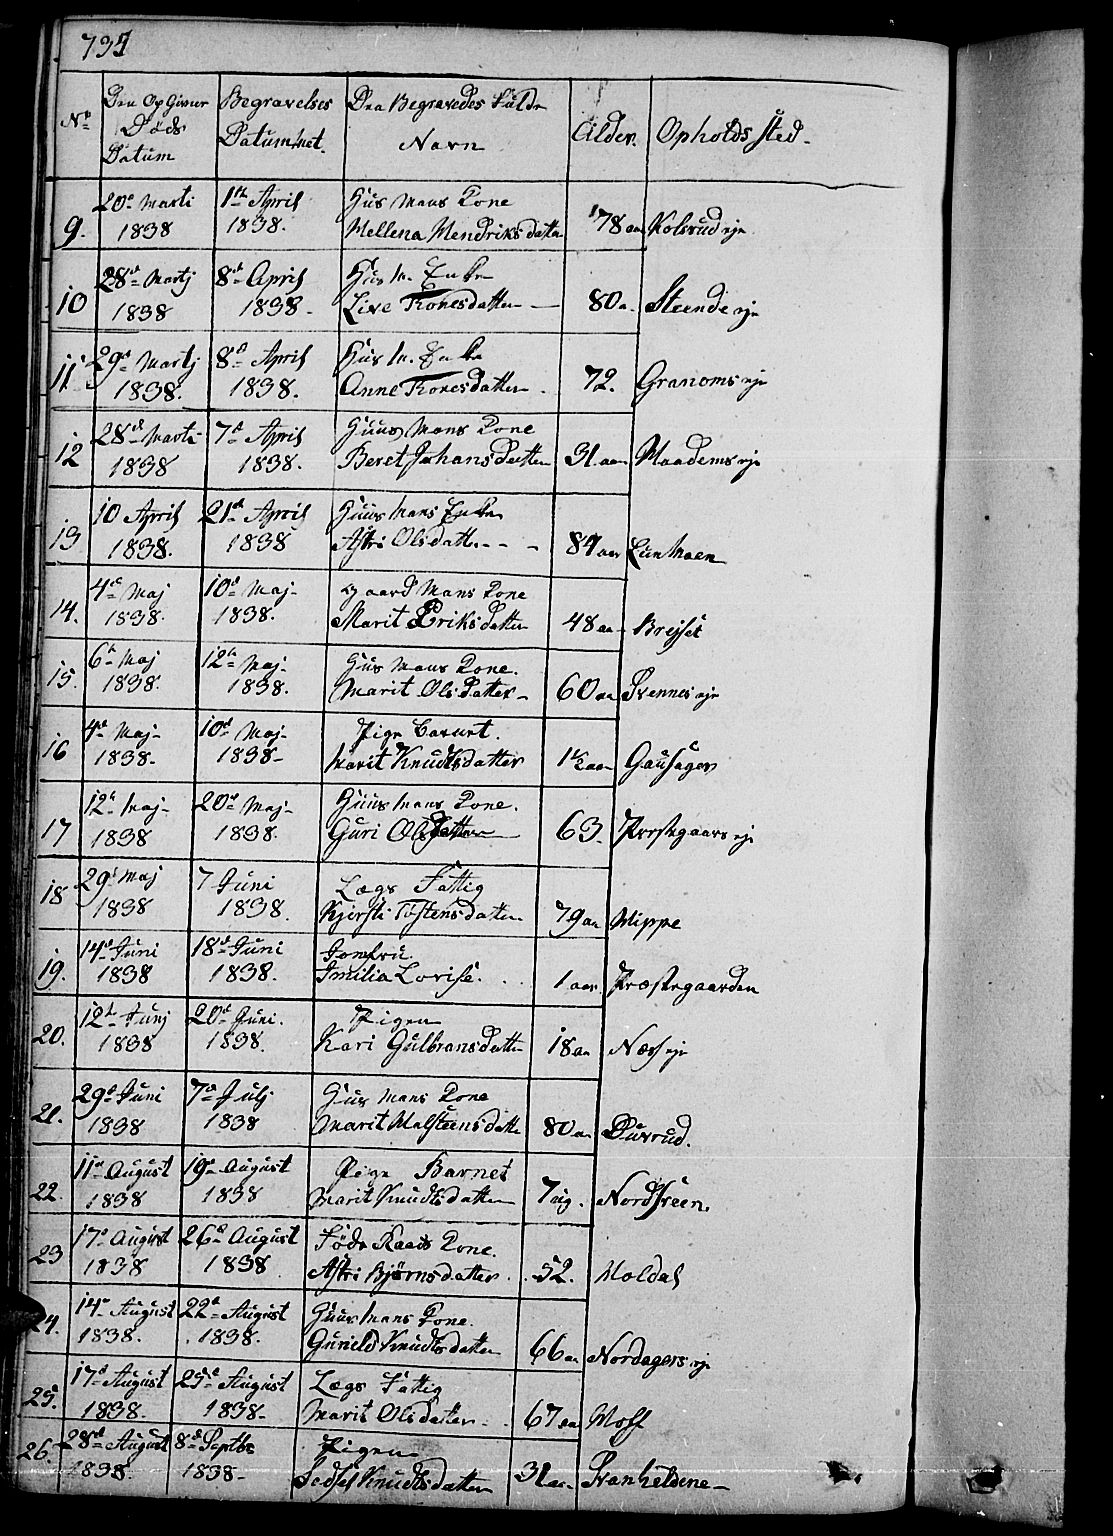 No
Den Op Givne Døds Datum
Begravelses Datum/net.
Den Begravedes Fulde Navn
Alder.
Opholds sted.
9. 20de Marti 1838 1ste April 1838. Huus Mans Kone Hellena Hendriks datter 78 aar Kolsrud eje
10 28de Martj 1838 8de April 1838. Huus M. Enke Live Tronesdatter 80 a. Steende eje
11 29de Martj 1838. 8de April 1838. Huus M. Enke Anne Tronesdatter. 72. Granoms eje
12 28de Marti 1838 7de April 1838. Huus Mans Kone Beret Johans Datter 31 aar Maadems eje
13 10 April 1838. 21de April 1838 Huus Mans Enke Astri Olsdatter 84 aar Lunmoen
14. 4de Maj 1838. 10de Maj 1838. Gaard Mans Kone Marit Eriks datter 48 aar Brejset
15. 6te Maj 1838. 12te Maj 1838. Huus Mans Kone. Marit Ols Datter 60 aar Svennes eje
16 4de Maj 1838. 10de Maj 1838 Pige Barnet. Marit Knudtsdatter 1 1/2 aar Gausager
17 12te Maj 1838 20de Maj 1838. Huus Mans Kone. Guri Olsdatter 63. Prestgaars eje
18 29de Maj 1838 7 Juni 1838. Lægs Fattig Kjersti Tostensdatter 79 aar Wippe
19. 14de Juni 1838 18de Juni 1838. Jomfru. Imilia Lovise. 1 aar. Præstegaarden
20. 12te Junj 1838 20de Juni. 1838. Pigen Kari Gulbransdatter 18 aar Næs eje
21. 29de Juni 1838 7de Julj 1838 Huus Mans Kone Marit Halsteensdatter 80 aar Dusrud.
22. 11te August 1838 19de August 1838 Pige Barnet Marit Knudtsdatter 7 uig. Nordsveen.
23 17de August 1838 26de August 1838 Føde Raads Kone. Astri Bjørnsdatter. 52. Moldal
24. 14de August 1838. 22de August 1838. Huus Mans Kone. Gunild Knudtsdatter 66 aar Nordagers eje
25. 17de August 1838. 25de August 1838. Lægs Fattig Marit Olsdatter. 67 aar
26. 28de August 1838. 8de Septbr 1838 Pigen Knudtsdatter 31 aar. Svanheldene